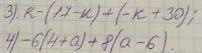 3). к-(17-к)+(-к+30);
4) -6(4+а)+8(а-6).